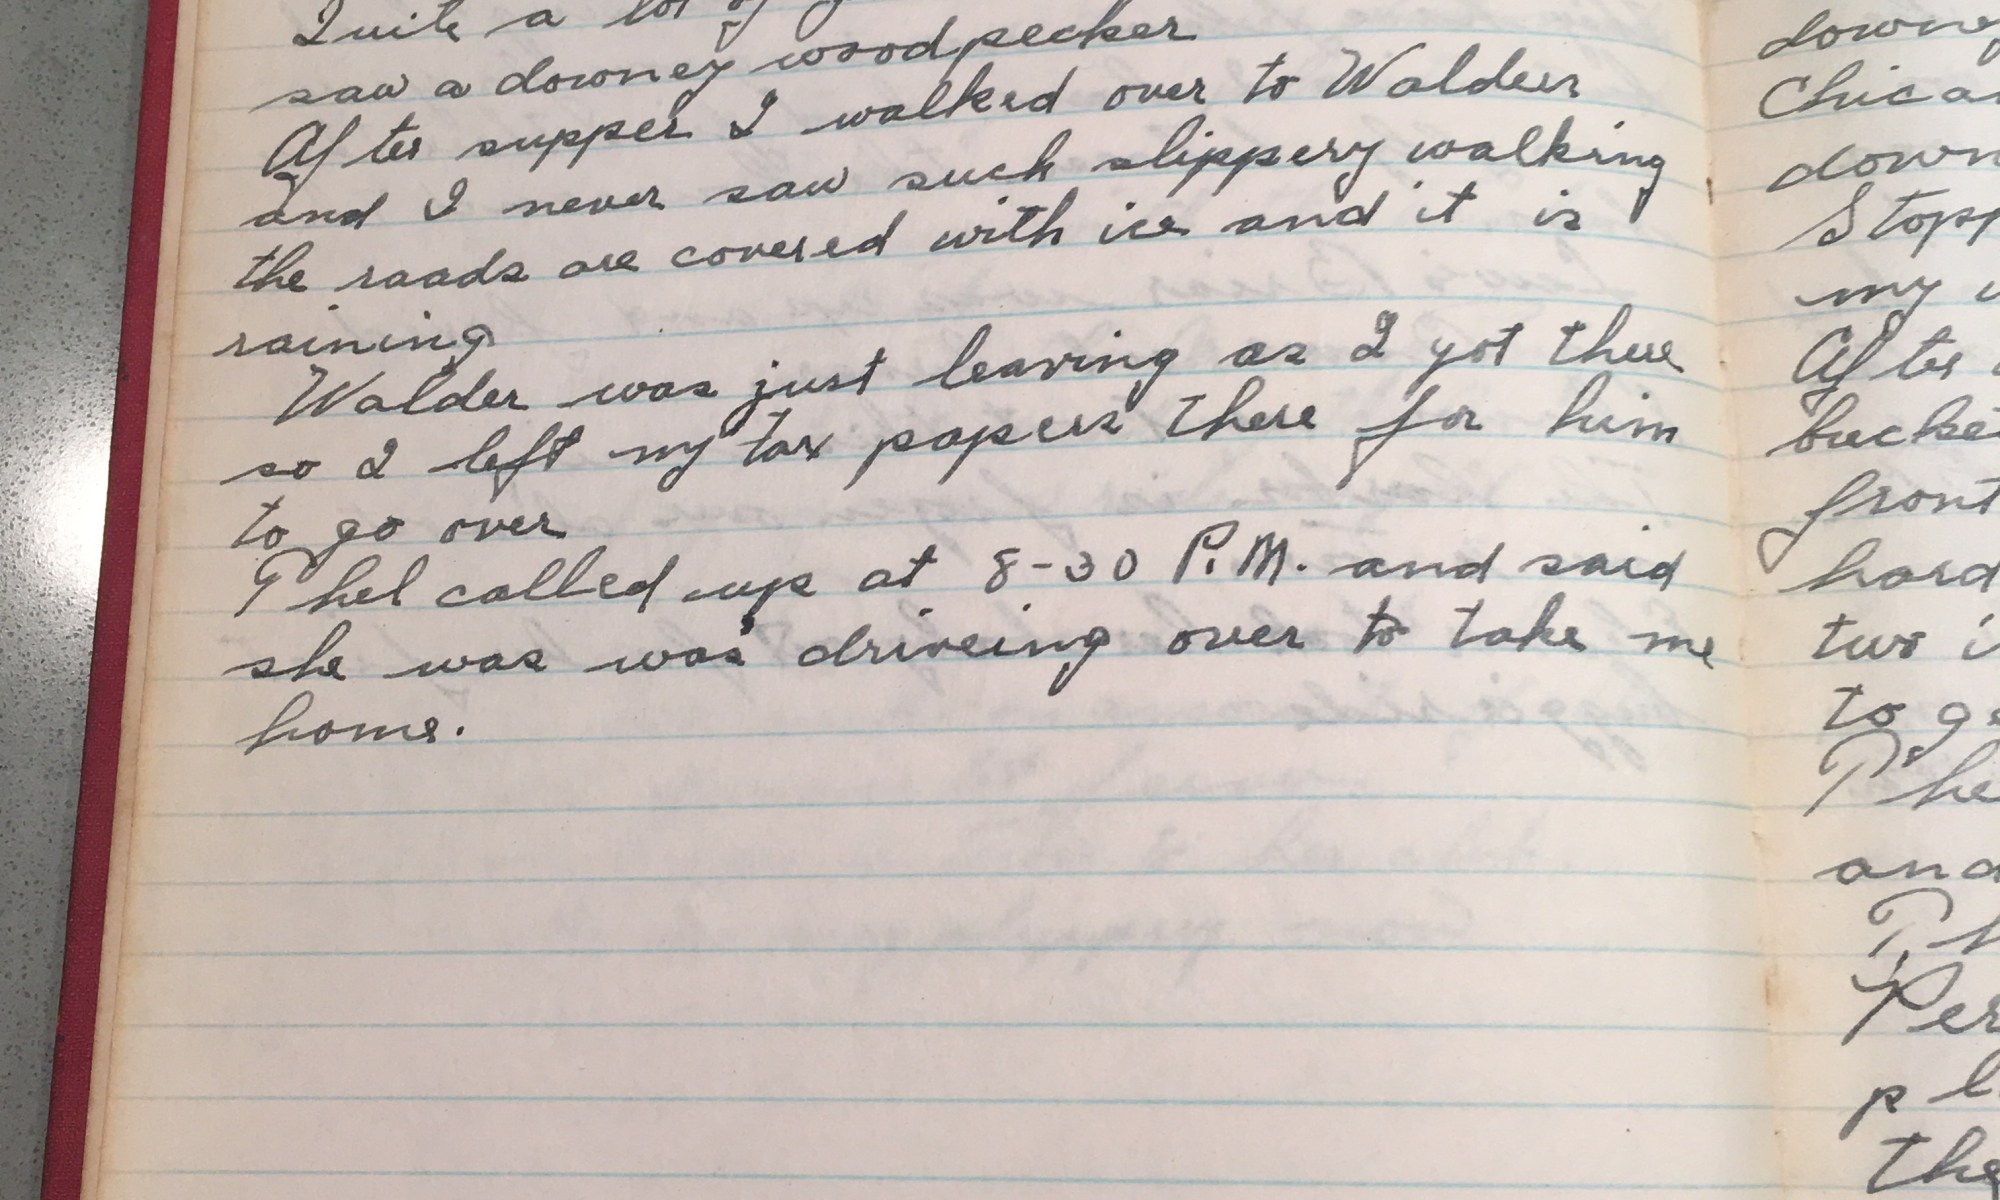 Quite a lot of
saw a downey woodpecker
After supper I walked over to Walders
and I never saw such slippery walking
the roads are covered with ice and it is
raining
Walder was just leaving as I got there
so I left my tax papers there for him
to go over
Phel called up at 8-30 P.M. and said
she was was driveing over to take me
home.
Chica
down
Stopp
my
After
bucke
front
hard
two i
to ge
Phe
and
Ph
Per
pl
the